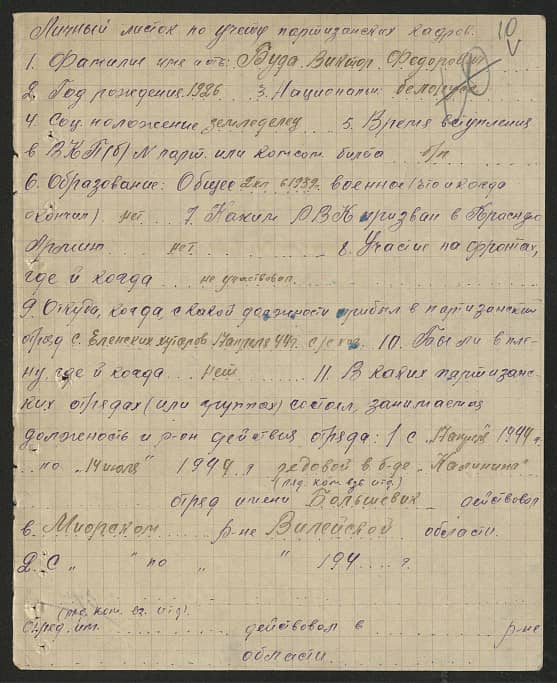 Личный листок по учету партизанских кадров.
10
1. Фамилие имя отч: Буда Виктор Федорович
2. Год рождения 1926 3. Национальн. белорусс
4. Соц. положение земледелец 5. Время вступления
в ВКП(б) N парт. или комсом. билета б/п
6. Образование: Общее 2 кл. в 1939г. военное (что и когда
окончил) нет 7. Каким РВК призван в Красную
Армию нет 8. Участие на фронтах,
где и когда не участвовал
9. Откуда, когда, с какой должности прибыл в партизанский
отряд с. Еленских хуторов 17 апреля 44г. с/хоз. 10. Был ли в пле-
ну, где и когда нет 11. В каких партизанс-
ких отрядах (или группах) состоял, занимаемая
должность и р-он действия отряда: 1 с апреля 1944 г.
по "14 июля" 1944 г рядовой в б-де "Калинина"
(ряд. ком. взв. итд.)
отряд имени Большевик действовал
в Миорском р-не Вилейской области.
2. С " " по " " 194 г.
(ряд. ком. вз. итд).
отряд. им. действовал в р-не
области